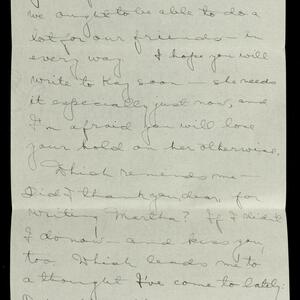 we ought to be able to do a
lot for our friends — in
every way. I hope you will
write to Kay soon — she needs
it especially just now, and
I'm afraid you will lose
your hold on her otherwise.
Which reminds me —
Did I thank you, dear, for
writing Martha? If I didn't
I do now — and kiss you
too. Which leads me to
a thought I've come to lately: